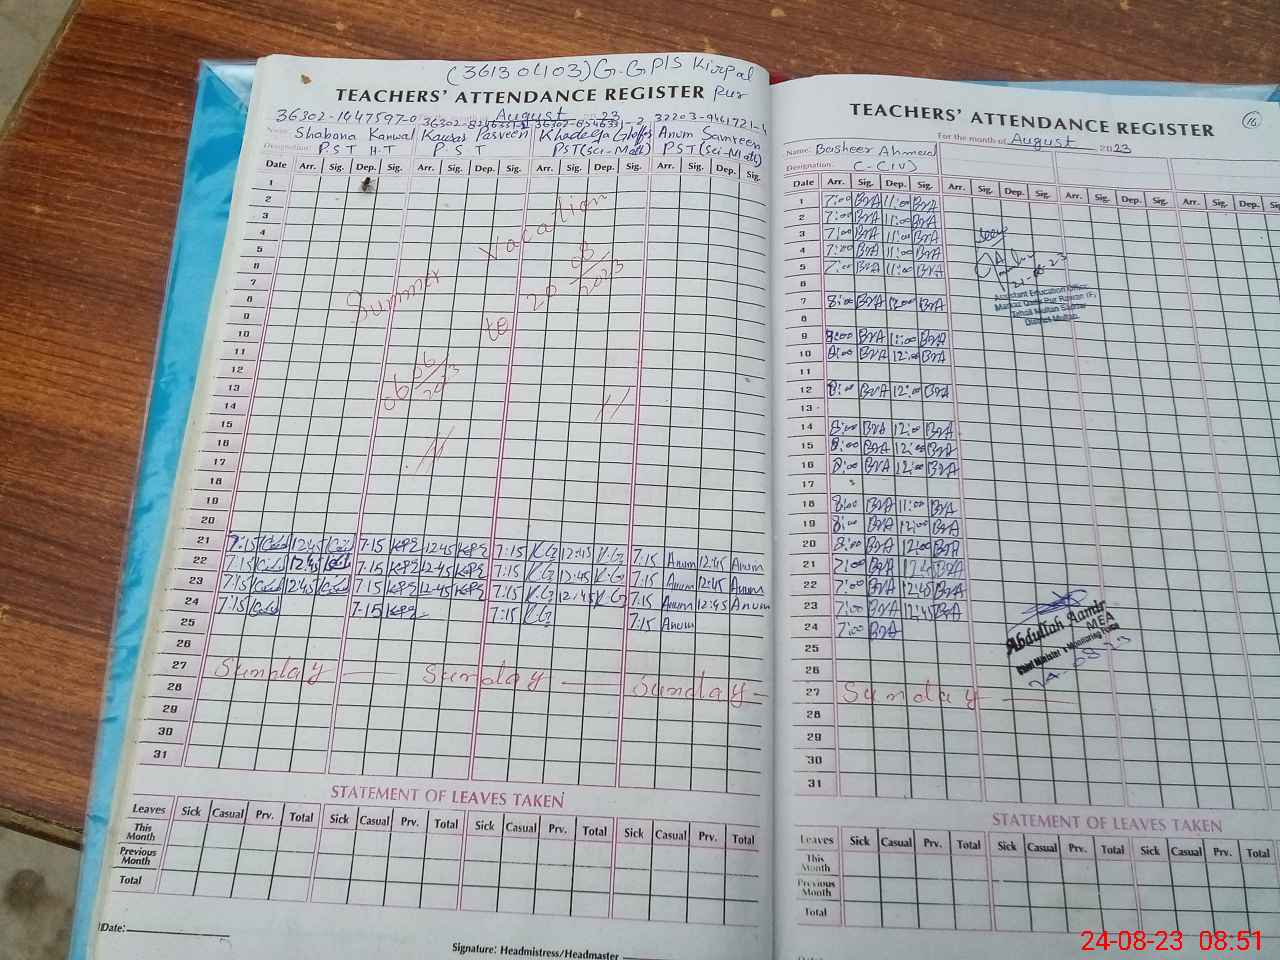 (36130403) G.GP/S Kirpal
TEACHERS' ATTENDANCE REGISTER Pur
August 23
36302-1447597-0
Name: Shabana Kanwal Kausar Parveen Khadeeja Ghaffar Anum Samreen
Designation: P S T H.T P. S T PST(Sci-Math) PST(Sci-Math)
Date Arr. Sig. Dep. Sig. Arr. Sig. Dep. Sig. Arr. Sig. Dep. Sig. Arr. Sig. Dep. Sig.
1
2
3
4
5
6
7
8
9
10
11
12
13
14
15
16
17
18
19
20
Summer Vacation
06 06/2023 to 20 08/2023
21 7:15 12:45 7:15 12:45 7:15 K.G 12:45 K.G 7:15 Anum 12:45 Anum
22 7:15 12:45 7:15 12:45 7:15 K.G 12:45 K.G 7:15 Anum 12:45 Anum
23 7:15 12:45 7:15 12:45 7:15 K.G 12:45 K.G 7:15 Anum 12:45 Anum
24 7:15 7:15 7:15 K.G 7:15 Anum
25
26
27 Sunday Sunday Sunday
28
29
30
31
STATEMENT OF LEAVES TAKEN
Leaves Sick Casual Prv. Total Sick Casual Prv. Total Sick Casual Prv. Total Sick Casual Prv. Total
This Month
Previous Month
Total
Date:
Signature: Headmistress/Headmaster
TEACHERS' ATTENDANCE REGISTER 16
For the month of August 2023
Name: Basheer Ahmed
Designation: C-C(IV)
Date Arr. Sig. Dep. Sig. Arr. Sig. Dep. Sig. Arr. Sig. Dep. Sig. Arr. Sig.
1 7:00 BrA 11:00 BrA
2 7:00 BrA 11:00 BrA
3 7:00 BrA 11:00 BrA
4 7:00 BrA 11:00 BrA
5 7:00 BrA 11:00 BrA
6
7 8:00 BrA 12:00 BrA
8
9 8:00 BrA 11:00 BrA
10 8:00 BrA 12:00 BrA
11
12 8:00 BrA 12:00 BrA
13
14 8:00 BrA 12:00 BrA
15 8:00 BrA 12:00 BrA
16 8:00 BrA 12:00 BrA
17
18 8:00 BrA 11:00 BrA
19 8:00 BrA 12:00 BrA
20 8:00 BrA 12:00 BrA
21 7:00 BrA 12:45 BrA
22 7:00 BrA 12:45 BrA
23 7:00 BrA 12:45 BrA
24 7:00 BrA
25
26
27 Sunday
28
29
30
31
Assistant Education Officer
Tehsil Multan Saddar
District Multan
Abdullah Aamir
MEA
STATEMENT OF LEAVES TAKEN
Leaves Sick Casual Prv. Total Sick Casual Prv. Total Sick Casual Prv. Total
This Month
Previous Month
Total
24-08-23 08:51